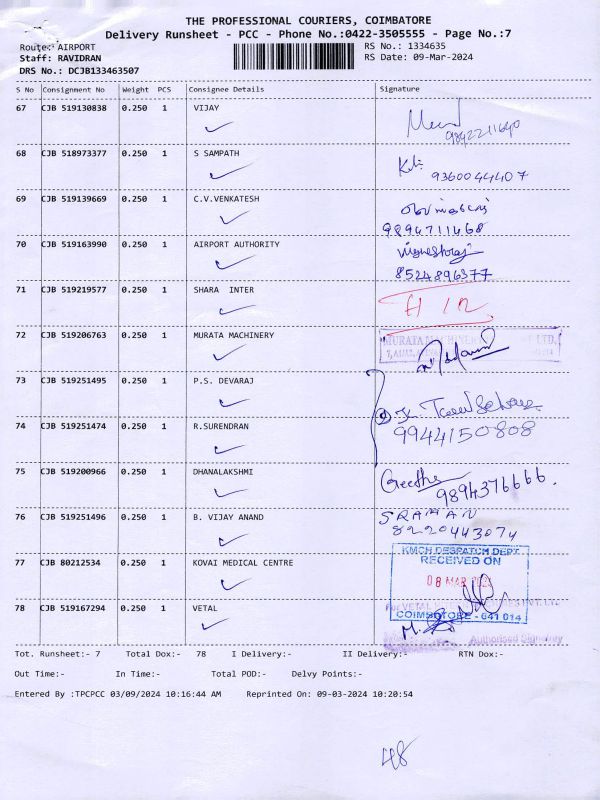 THE PROFESSIONAL COURIERS, COIMBATORE
Delivery Runsheet - PCC - Phone No.:0422-3505555 - Page No.:7
Route: AIRPORT RS No.: 1334635
Staff: RAVIDRAN RS Date: 09-Mar-2024
DRS No.: DCJB133463507
S No Consignment No Weight PCS Consignee Details Signature
67 CJB 519130838 0.250 1 VIJAY
9842211640
68 CJB 518973377 0.250 1 S SAMPATH
9360044407
69 CJB 519139669 0.250 1 C.V.VENKATESH
9894711468
70 CJB 519163990 0.250 1 AIRPORT AUTHORITY
8524896377
71 CJB 519219577 0.250 1 SHARA INTER
72 CJB 519206763 0.250 1 MURATA MACHINERY MURATA
73 CJB 519251495 0.250 1 P.S. DEVARAJ
74 CJB 519251474 0.250 1 R.SURENDRAN
9944150808
75 CJB 519200966 0.250 1 DHANALAKSHMI Geetha
9894376666.
76 CJB 519251496 0.250 1 B. VIJAY ANAND
8220443074
77 CJB 80212534 0.250 1 KOVAI MEDICAL CENTRE KMCH DESPATCH DEPT.
RECEIVED ON
08 MAR 2024
78 CJB 519167294 0.250 1 VETAL For VETAL PVT. LTD.
COIMBATORE - 641 014
Authorised Signatory
Tot. Runsheet:- 7 Total Dox:- 78 I Delivery:- II Delivery:- RTN Dox:-
Out Time:- In Time:- Total POD:- Delvy Points:-
Entered By :TPCPCC 03/09/2024 10:16:44 AM Reprinted On: 09-03-2024 10:20:54
48